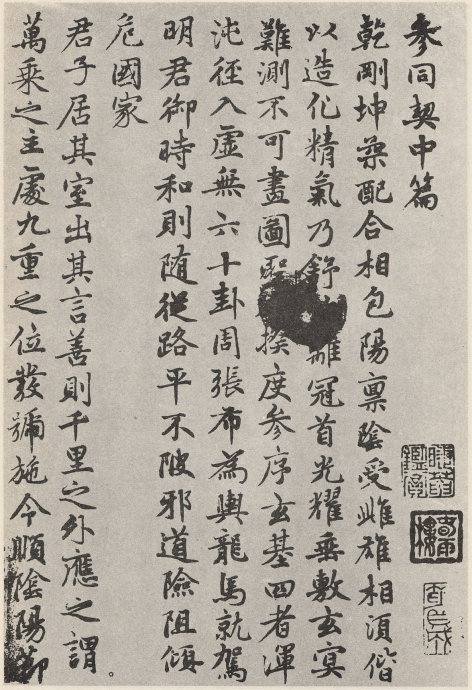 参同契中篇
乾剛坤柔配合相包陽禀陰受雌雄相須偕
以造化精氣乃舒離冠首光耀垂敷玄冥
難測不可畫圖聖揆度参序玄基四者渾
沌徑入虛無六十卦周張布為輿龍馬就駕
明君御時和則随從路平不陂邪道險阻傾
危國家
君子居其室出其言善則千里之外應之謂
萬乘之主處九重之位發號施令順陰陽節